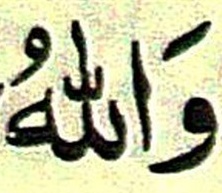 وَاللهُ